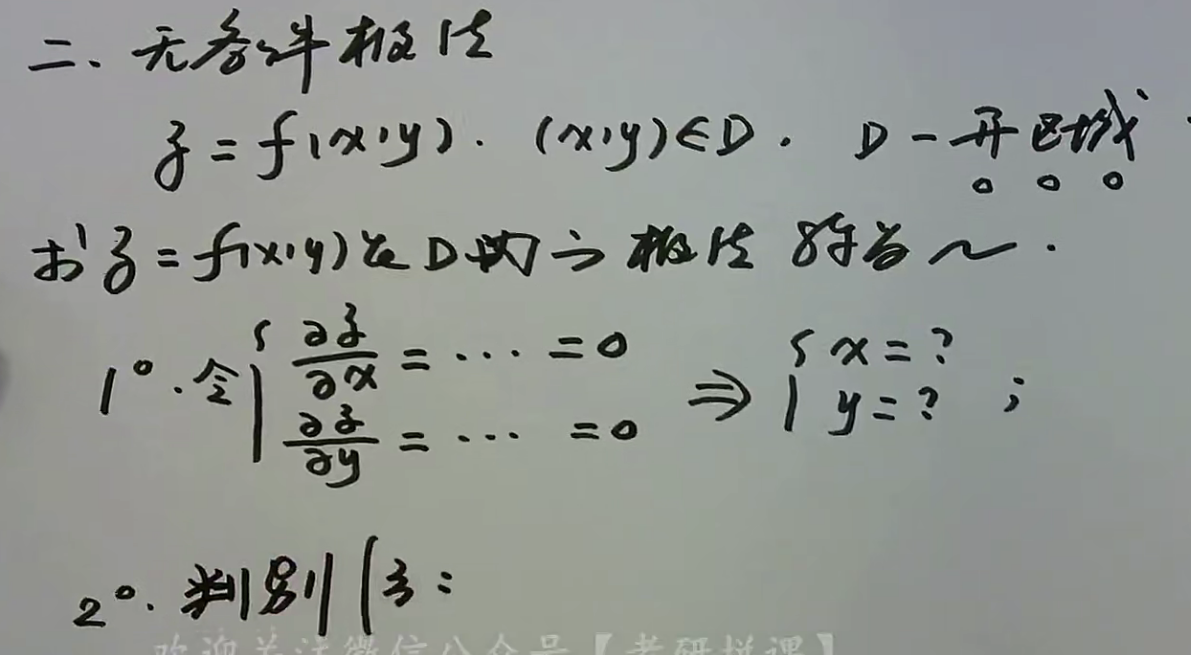 二、无条件极值
z = f(x,y). (x,y)∈D. D-开区域.
求z=f(x,y)在D内之极值 称为~.
1°.令{ ∂z/∂x = ⋯ = 0
∂z/∂y = ⋯ = 0 ⇒ { x=?
y=? ;
2°.判别
欢迎关注微信公众号【考研拼课】